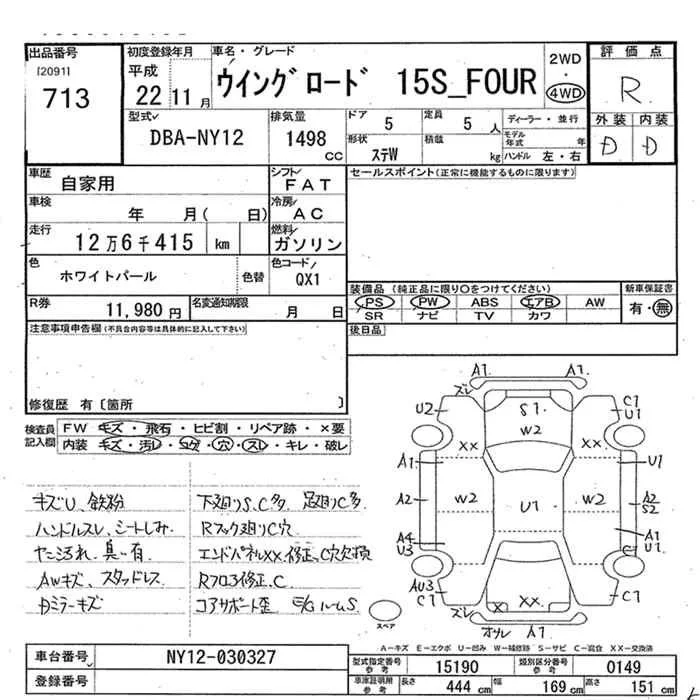 出品番号
[2091]
713
初度登録年月
平成
22 11月
車名・グレード
ウイングロード 15S_FOUR
2WD
・
4WD
評価点
R
外装 内装
D D
型式
DBA-NY12
排気量
1498
CC
ドア 5
定員 5 人
形状 ステW
積載 kg
ディーラー・並行
モデル年式 年
ハンドル 左・右
車歴 自家用
シフト FAT
車検 年 月( 日)
冷房 AC
走行 12万6千415 km
燃料 ガソリン
色 ホワイトパール
色替
色コード QX1
R券 11,980円
名変通知期限 月 日
セールスポイント(正常に機能するものに限ります)
装備品(純正品に限り○をつけてください)
新車保証書
PS PW ABS エアB AW
有・無
SR ナビ TV カワ
後日品
注意事項申告欄(不具合内容等は具体的に記入して下さい)
修復歴 有〔箇所 〕
検査員記入欄
FW キズ・飛石・ヒビ割・リペア跡・×要
内装 キズ・汚レ・コゲ・穴・スレ・キレ・破レ
キズU、鉄粉
ハンドルスレ、シートしみ
ヤニ汚れ、臭い有
AWキズ、スタッドレス
Dミラーキズ
下廻りS、C多 足廻りC多
Rフック廻りC穴
エンドパネルXX、修正、C穴欠損
Rフロア修正、C
コアサポート歪 E/GルームS
A1 A1
ズレ
U2 S1 C1
U1
W2
XX XX
A1 U1
A2 W2 U1 W2 A2
S2
A4
U3
A1
U1
AU3
C1
X XX C1
ズレ
オサレ A1
スペア
A-キズ E-エクボ U-凹み W-補修跡 S-サビ C-腐食 XX-交換済
車台番号 NY12-030327
登録番号
型式指定番号 参考 15190
類別区分番号 参考 0149
車庫証明用 参考
長さ 444 cm
幅 169 cm
高さ 151 cm